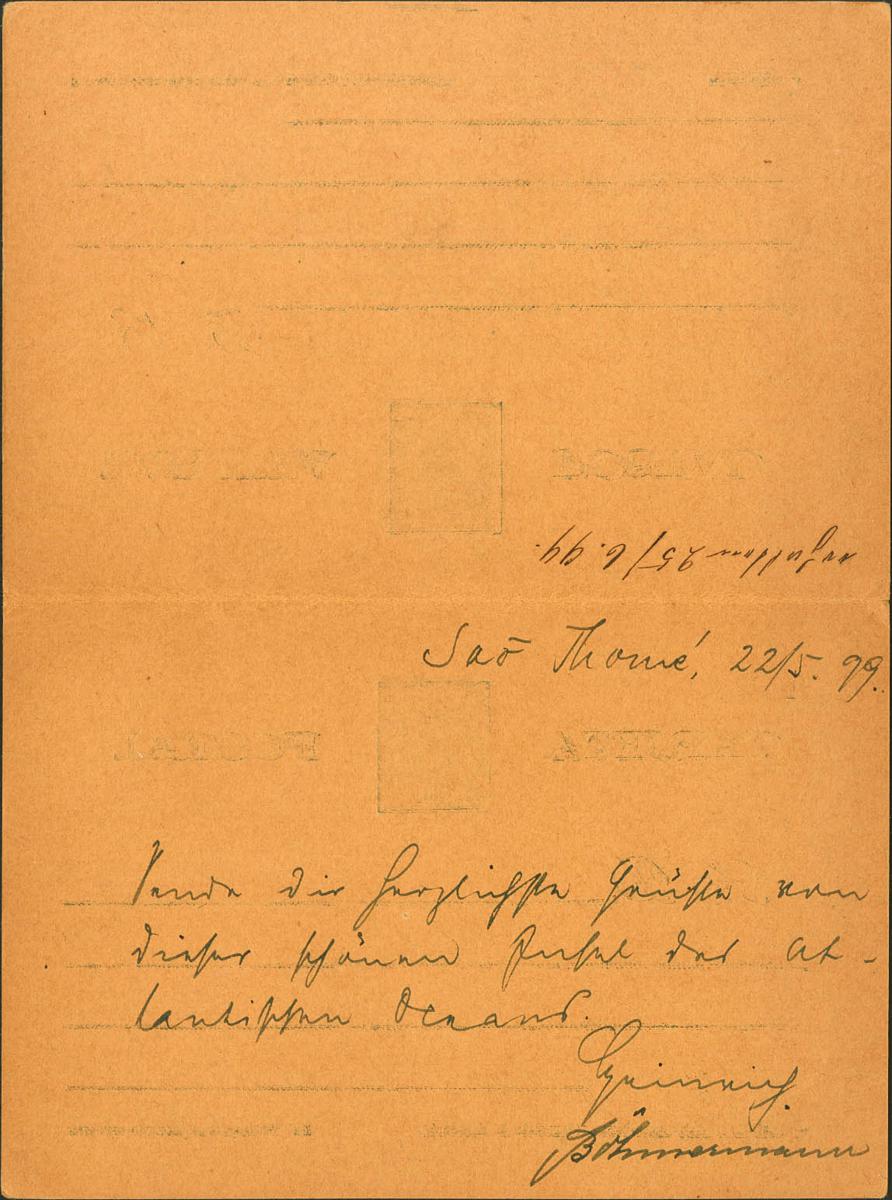 erhalten 25/6.99.
Saõ Thomé, 22/5. 99.
Sende dir herzlichste Grüße von
dieser schönen Insel des at-
lantischen Oceans.
Heinrich
Böhmermann